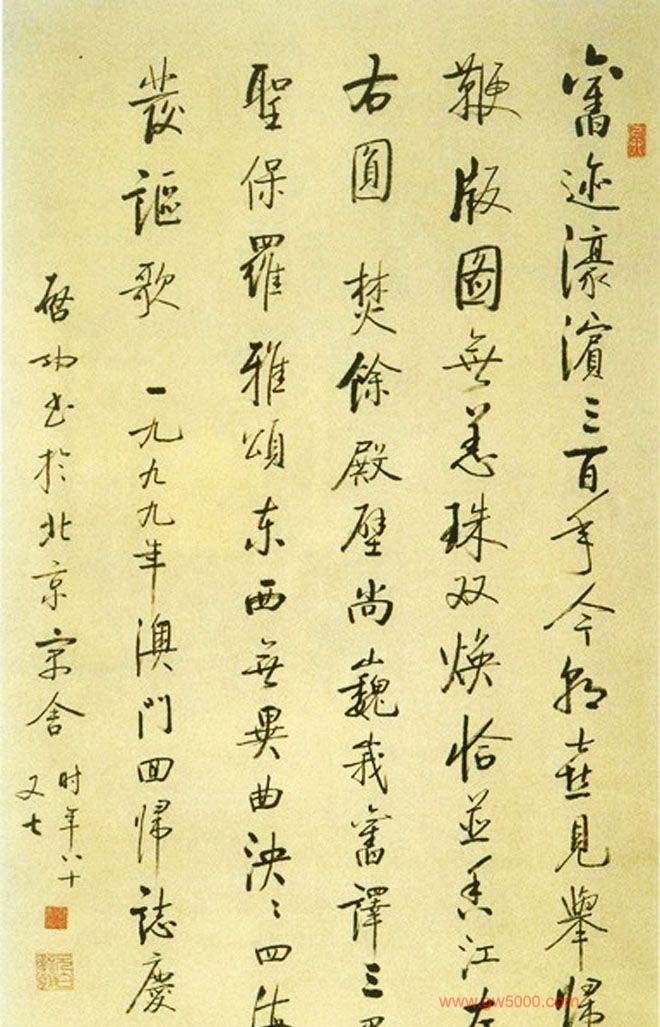 舊迹濠濱三百年今朝喜見舉歸
鞭版圖無恙珠双焕恰並香江左
右圓 焚餘殿壁尚巍峩舊譯三巴
聖保羅雅頌东西無異曲泱〻四海
發謳歌 一九九九年澳門回歸誌慶
啓功书於北京寓舍 时年八十
又七
www.gw5000.com